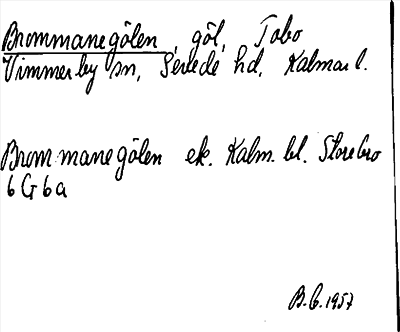 Brommanegölen, göl, Tobo
Vimmerby sn, Sevede hd, Kalmar l.
Brommanegölen ek. Kalm. bl. Storebro
6G6a
B.G. 1957